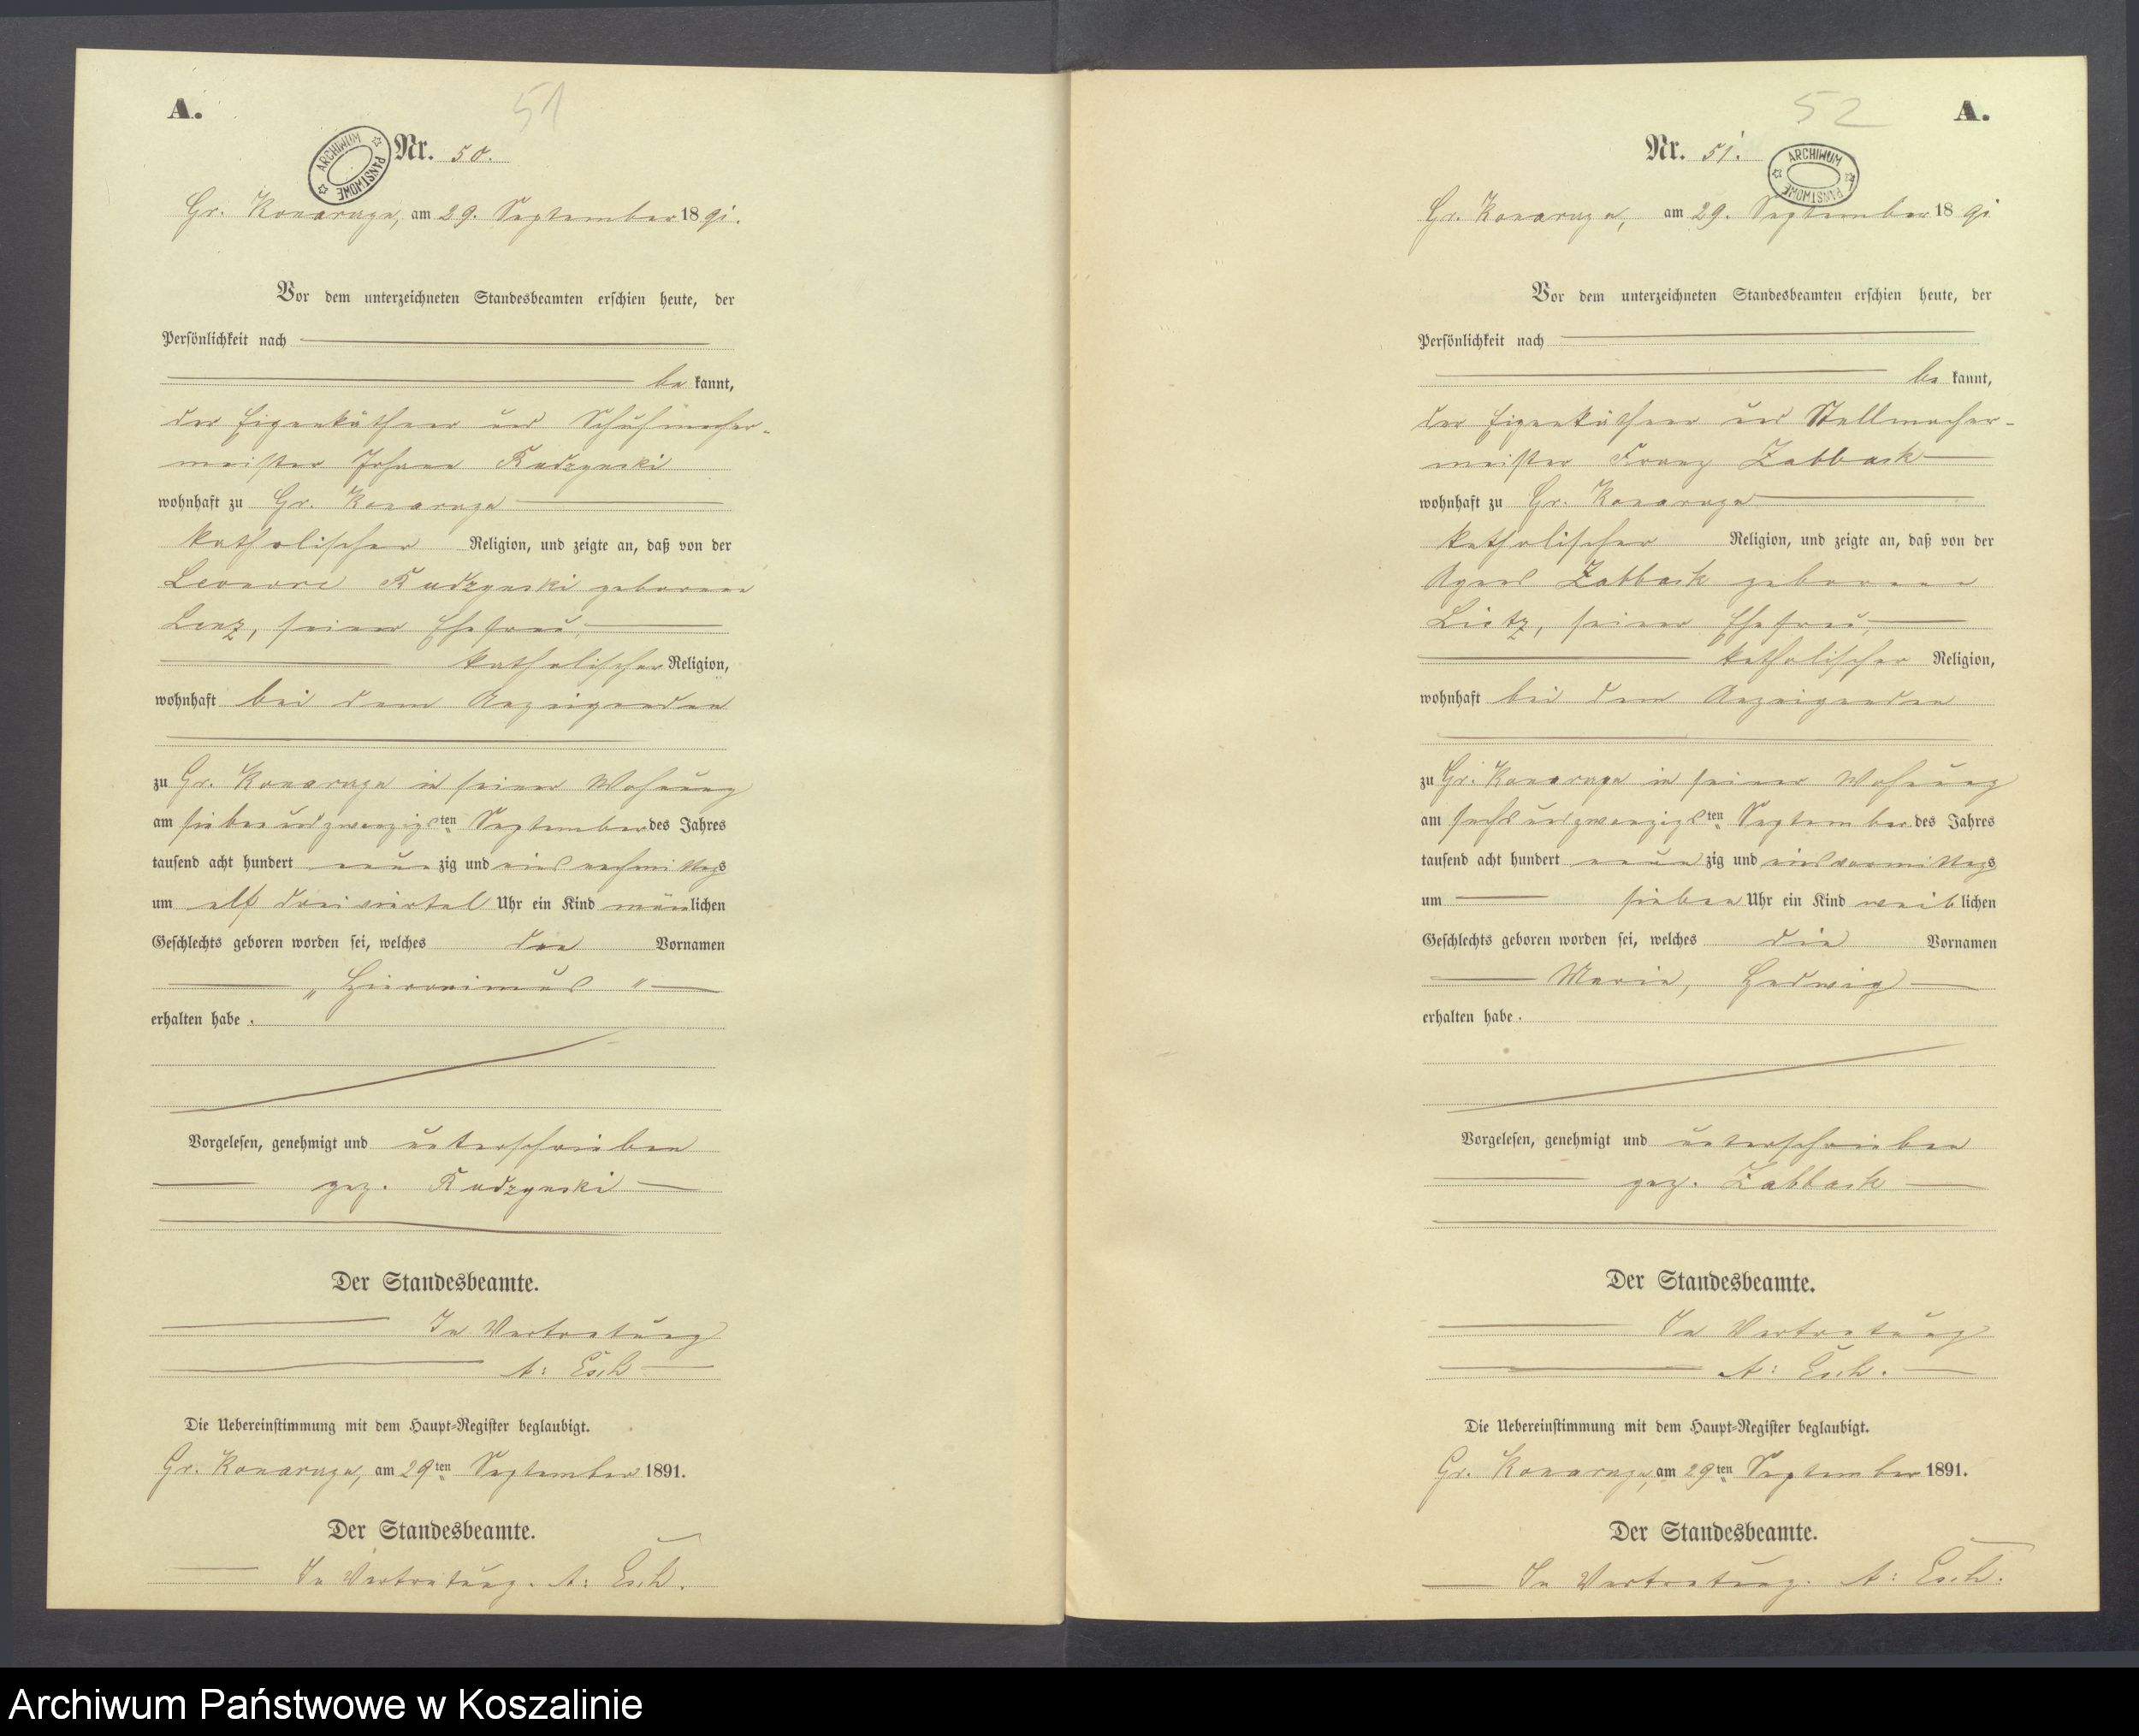 51
A.
ARCHIWUM PAŃSTWOWE
Nr. 50.
Gr. Konarczyn, am 29. September 1891.
Vor dem unterzeichneten Standesbeamten erschien heute, der
Persönlichkeit nach
bekannt,
der Eigenkäthner und Schuhmacher-
meister Johann Rudzynski
wohnhaft zu Gr. Konarczyn
katholischer Religion, und zeigte an, daß von der
Leonore Rudzynski geborene
Lenz, seiner Ehefrau,
katholischer Religion,
wohnhaft bei dem Anzeigenden
zu Gr. Konarczyn in seiner Wohnung
am siebenundzwanzigsten September des Jahres
tausend acht hundert neunzig und eins nachmittags
um elf dreiviertel Uhr ein Kind mänlichen
Geschlechts geboren worden sei, welches den Vornamen
„ Hieronimus "
erhalten habe.
Vorgelesen, genehmigt und unterschrieben
gez. Rudzynski
Der Standesbeamte.
In Vertretung
A: Esch
Die Uebereinstimmung mit dem Haupt-Register beglaubigt.
Gr. Konarczyn, am 29ten September 1891.
Der Standesbeamte.
In Vertretung. A: Esch.
52
A.
Nr. 51.
ARCHIWUM PAŃSTWOWE
Gr. Konarczyn, am 29. September 1891
Vor dem unterzeichneten Standesbeamten erschien heute, der
Persönlichkeit nach
bekannt,
der Eigenkäthner und Stellmacher-
meister Franz Zabback
wohnhaft zu Gr. Konarczyn
katholischer Religion, und zeigte an, daß von der
Agnes Zabback geborene
Lietz, seiner Ehefrau,
katholischer Religion,
wohnhaft bei dem Anzeigenden
zu Gr. Konarczyn in seiner Wohnung
am sechsundzwanzigsten September des Jahres
tausend acht hundert neunzig und eins vormittags
um sieben Uhr ein Kind weiblichen
Geschlechts geboren worden sei, welches die Vornamen
Maria, Hedwig
erhalten habe.
Vorgelesen, genehmigt und unterschrieben
gez. Zabback
Der Standesbeamte.
In Vertretung
A: Esch.
Die Uebereinstimmung mit dem Haupt-Register beglaubigt.
Gr. Konarczyn, am 29ten September 1891.
Der Standesbeamte.
In Vertretung. A: Esch.
Archiwum Państwowe w Koszalinie